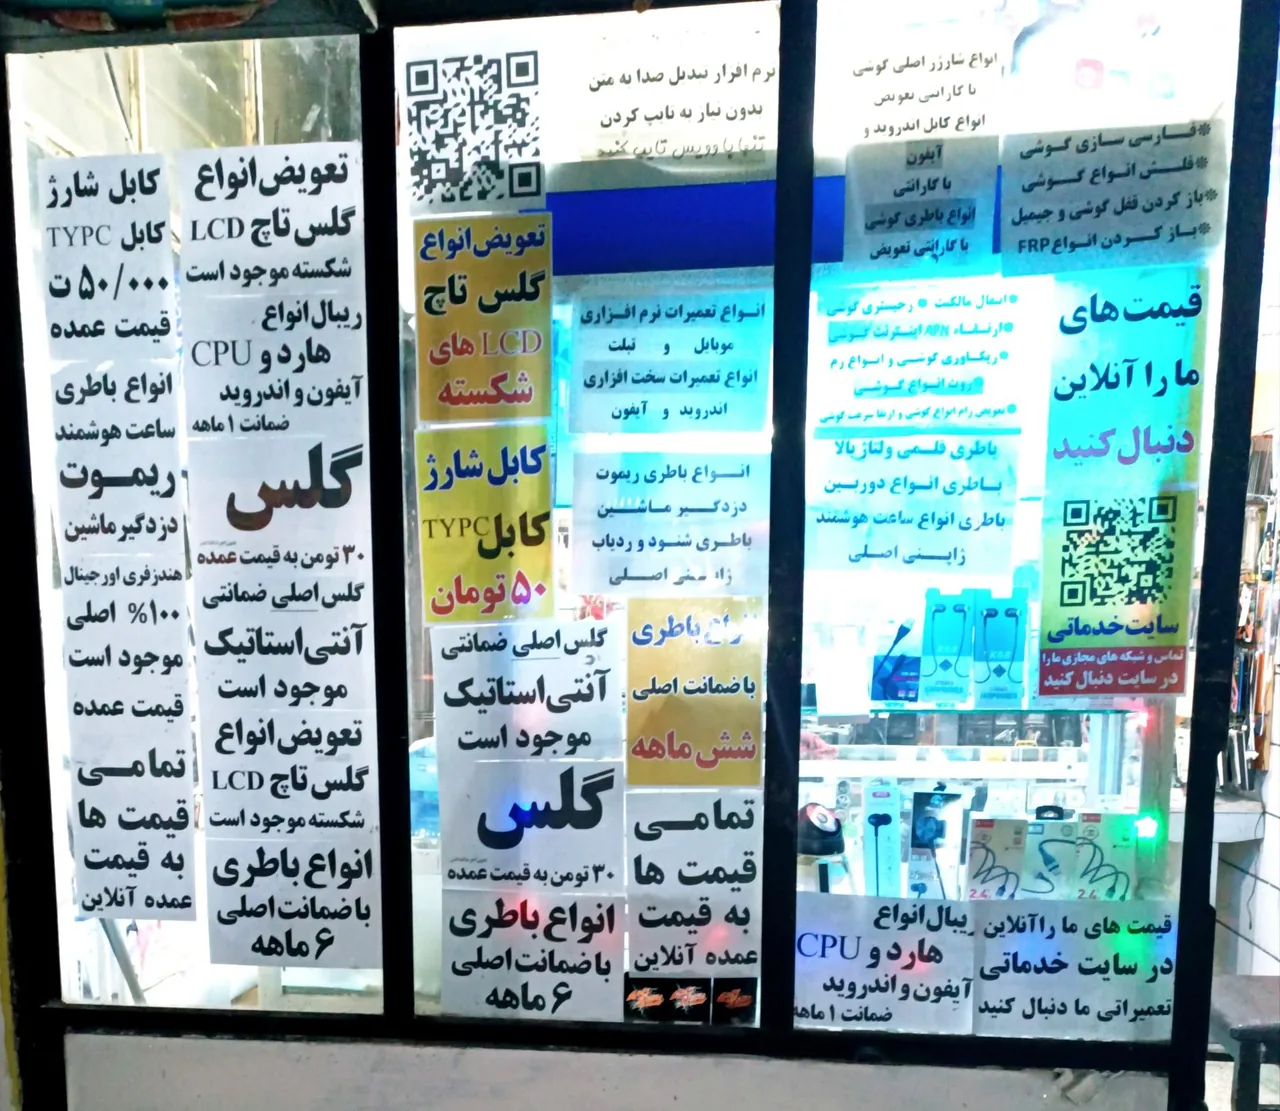 کابل شارژ
کابل TYPC
۵۰/۰۰۰ ت
قیمت عمده
انواع باطری
ساعت هوشمند
ریموت
دزدگیر ماشین
هندزفری اورجینال
۱۰۰% اصلی
موجود است
قیمت عمده
تمامی
قیمت ها
به قیمت
عمده آنلاین
تعویض انواع
گلس تاچ LCD
شکسته موجود است
ریبال انواع
هارد و CPU
آیفون و اندروید
ضمانت ۱ ماهه
گلس
۳۰ تومن به قیمت عمده
گلس اصلی ضمانتی
آنتی استاتیک
موجود است
تعویض انواع
گلس تاچ LCD
شکسته موجود است
انواع باطری
با ضمانت اصلی
۶ ماهه
نرم افزار تبدیل صدا به متن
بدون نیاز به تایپ کردن
تنها با وویس تایپ کنید
تعویض انواع
گلس تاچ
LCD های
شکسته
کابل شارژ
کابل TYPC
۵۰ تومان
گلس اصلی ضمانتی
آنتی استاتیک
موجود است
گلس
۳۰ تومن به قیمت عمده
انواع باطری
با ضمانت اصلی
۶ ماهه
انواع تعمیرات نرم افزاری
موبایل و تبلت
انواع تعمیرات سخت افزاری
اندروید و آیفون
انواع باطری ریموت
دزدگیر ماشین
باطری شنود و ردیاب
ژاپنی اصلی
انواع باطری
با ضمانت اصلی
شش ماهه
تمامی
قیمت ها
به قیمت
عمده آنلاین
انواع شارژر اصلی گوشی
با گارانتی تعویض
انواع کابل اندروید و
آیفون
با گارانتی
انواع باطری گوشی
با گارانتی تعویض
* فارسی سازی گوشی
* فلش انواع گوشی
* باز کردن قفل گوشی و جیمیل
* باز کردن انواع FRP
* انتقال مالکیت * رجیستری گوشی
* ارتقاء APN اینترنت گوشی
* ریکاوری گوشی و انواع رم
* روت انواع گوشی
* تعویض رام انواع گوشی و ارتقا سرعت گوشی
باطری قلمی ولتاژ بالا
باطری انواع دوربین
باطری انواع ساعت هوشمند
ژاپنی اصلی
قیمت های
ما را آنلاین
دنبال کنید
سایت خدماتی
تماس و شبکه های مجازی ما را
در سایت دنبال کنید
2.4
2.4
ریبال انواع
هارد و CPU
آیفون و اندروید
ضمانت ۱ ماهه
قیمت های ما را آنلاین
در سایت خدماتی
تعمیراتی ما دنبال کنید